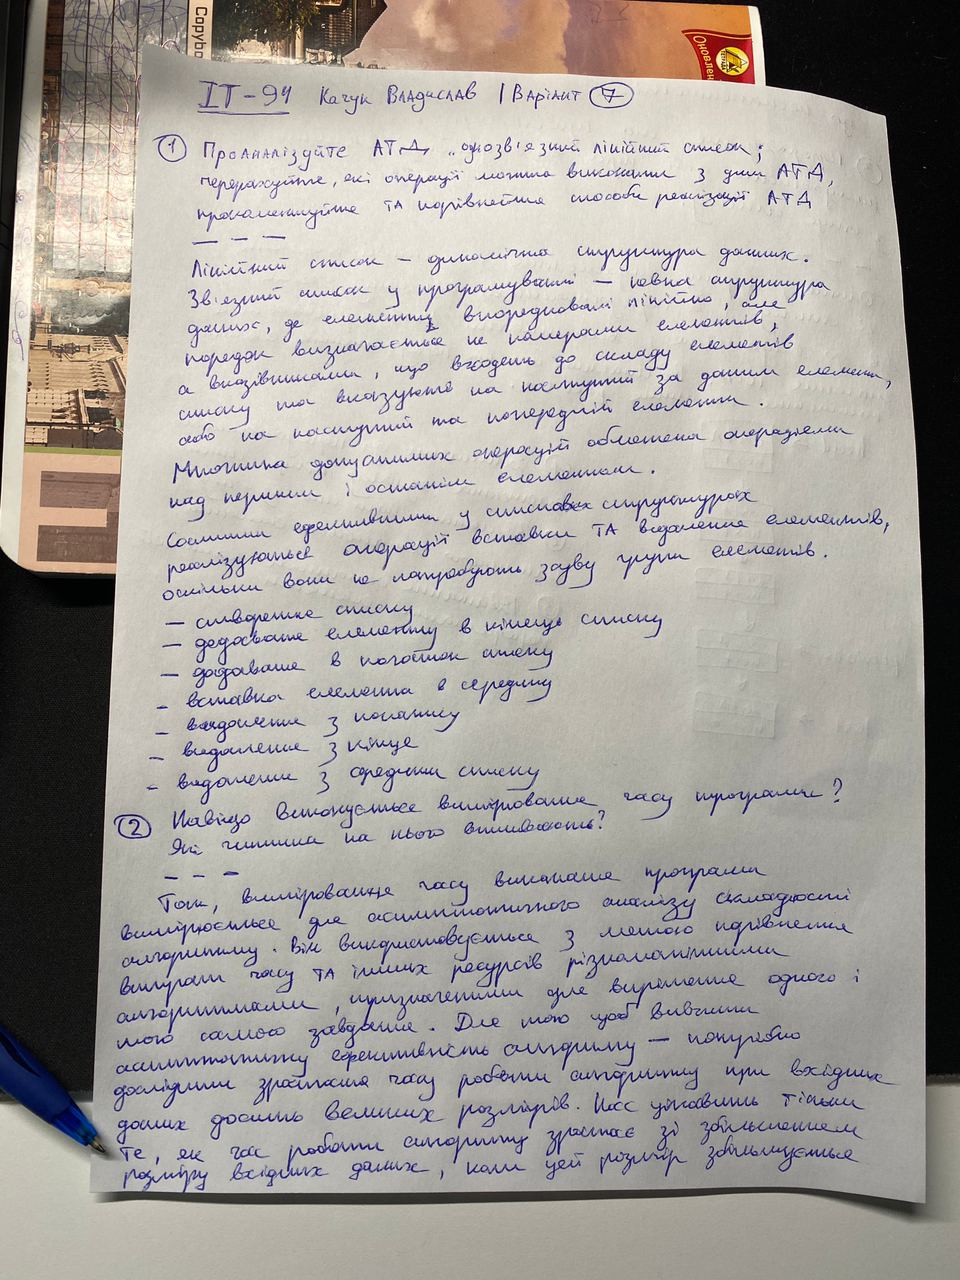 Соруво
Оновлен
ІТ-94 Качук Владислав | Варіант 7
1 Проаналізуйте АТД „однозв'язний лінійний список;
перерахуйте, які операції можна виконати з цим АТД,
прокоментуйте ТА порівняйте способи реалізації АТД
— — —
Лінійний список – динамічна структура даних.
Зв'язний список у програмуванні – певна структура
даних, де елементи впорядковані лінійно, але
порядок визначається не номерами елементів,
а вказівниками, що входять до складу елементів
списку та вказують на наступний за даним елемент,
або на наступний та попередній елементи.
Множина допустимих операцій обмежена операціями
над першим і останнім елементами.
Самими ефективними у спискових структурах
реалізуються операції вставки ТА видалення елементів,
оскільки вони не потребують зсуву групи елементів.
– створення списку
– додавання елементу в кінець списку
– додавання в початок списку
– вставка елемента в середину
– видалення з початку
– видалення з кінця
– видалення з середини списку
2 Навіщо виконується вимірювання часу програми?
Які чинники на нього впливають?
– – –
Тож, вимірювання часу виконання програми
вимірюється для асимптотичного аналізу складності
алгоритму. Він використовується з метою порівняння
витрати часу ТА інших ресурсів різноманітними
алгоритмами, призначеними для вирішення одного і
того самого завдання. Для того щоб вивчити
асимптотичну ефективність алгоритму – потрібно
дослідити зростання часу роботи алгоритму при вхідних
даних досить великих розмірів. Нас цікавить тільки
те, як час роботи алгоритму зростає зі збільшенням
розміру вхідних даних, коли цей розмір збільшується